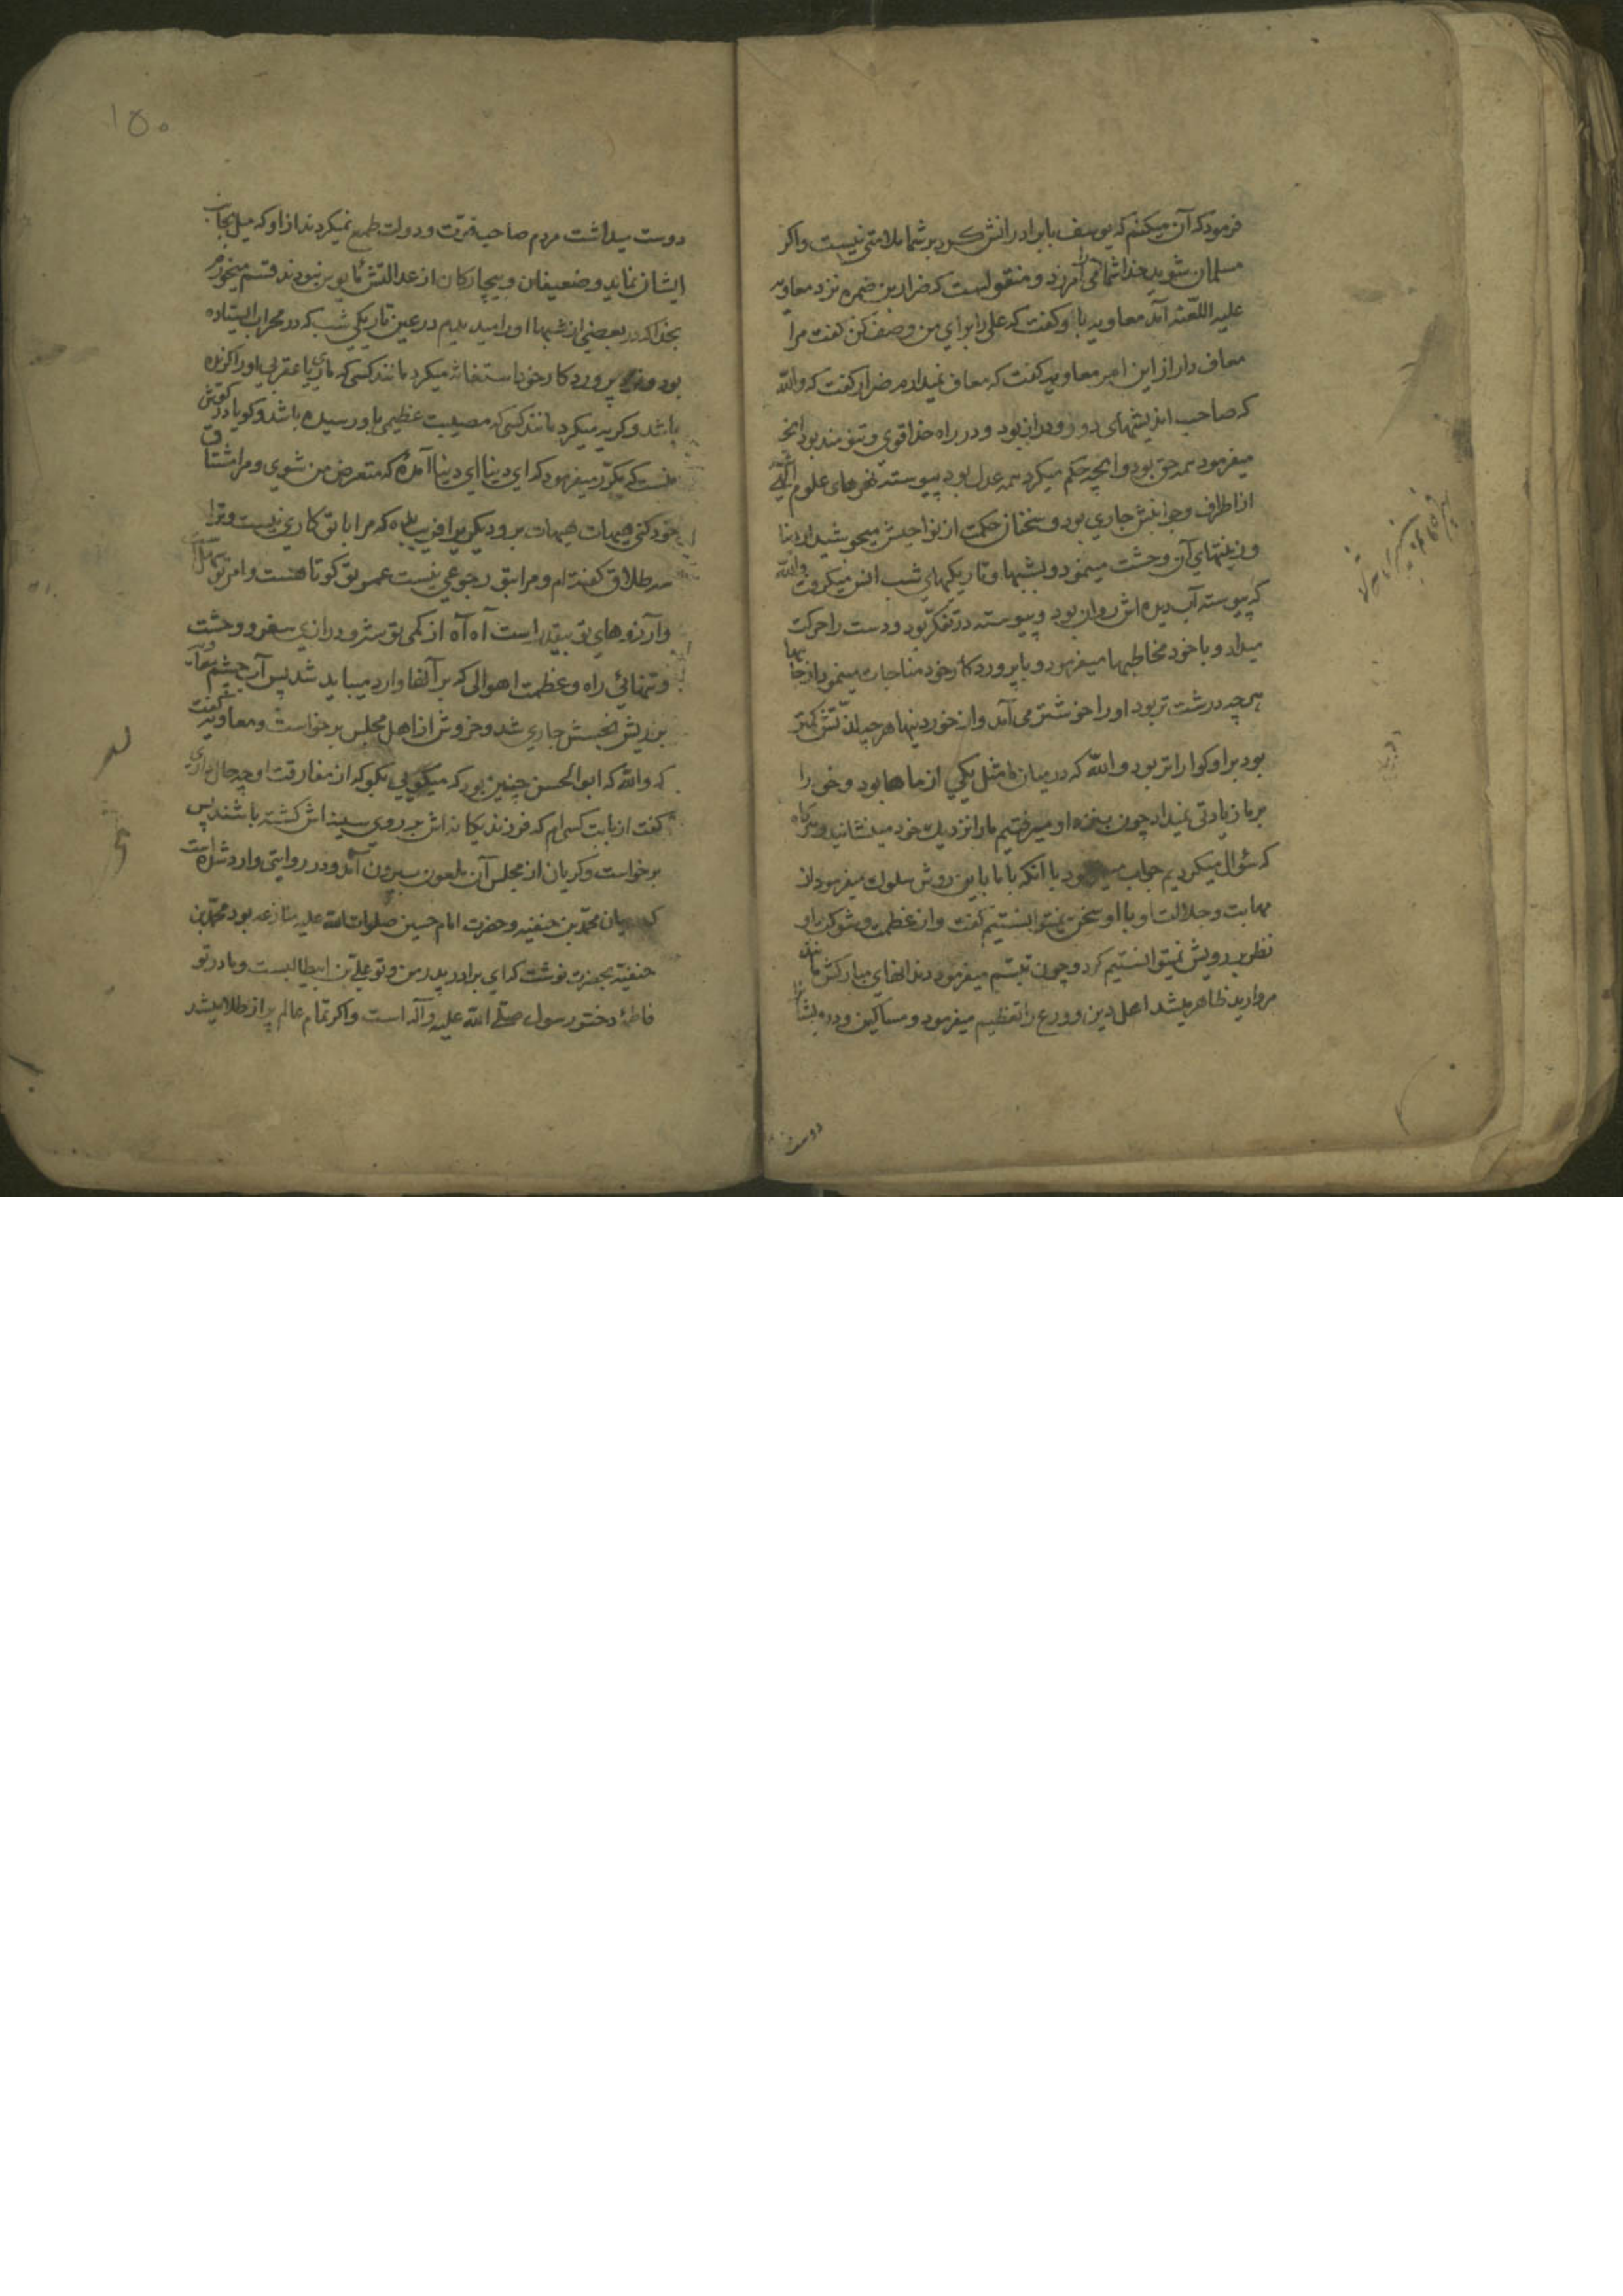 فرمود که آن میکنم که یوسف با برادرانش کرد بر شما ملامتی نیست و اکر
مسلمان شوید خدا شما را می آمرزد و منقولست که ضرار بن ضمره نزد معاویه
علیه اللّعنه آمد معاویه باو کفت که علی را برای من وصف کن کفت مرا
معاف دار از این امر معاویه کفت که معاف نمیدارم ضرار کفت که واللّه
که صاحب اندیشهای دور و دراز بود و در راه خدا قوی و تنومند بود انچه
میفرمود همه حق بود و انچه حکم میکرد همه عدل بود پیوسته نهرهای علوم الٓهی
از اطراف و جوانبش جاری بود و سخنان حکمت از نواحیش میجوشید از دنیا
و زینتهای آن وحشت مینمود و بشبها و تاریکیهای شب انس میکرفت واللّه
که پیوسته آب دیده اش روان بود و پیوسته در تفکّر بود و دست را حرکت
میداد و با خود مخاطبها میفرمود و با پرورد کار خود مناجات مینمود از جامها
هر چه درشت تر بود او را خوشتر می آمد و از خوردنیها هر چه لذّتش کمتر
بود بر او کواراتر بود واللّه که در میان ما مثل یکی از ماها بود و خود را
بر ما زیادتی نمیداد چون بنزد او میرفتیم ما را نزدیك خود مینشانید و هرکاه
که سئوال میکردیم جواب میفرمود با آنکه با ما باین روش سلوك میفرمود از
مهابت و جلالت او با او سخن نمیتوانستیم کفت و از عظمت و شوکت او
نظر بر رویش نمیتوانستیم کرد و چون تبسّم میفرمود دندانهای مبارکش مانند
مروارید ظاهر میشد اهل دین و ورع را تعظیم میفرمود و مساکین و درویشان را
دوست
۱۵۰
دوست میداشت مردم صاحب قوّت و دولت طمع نمیکردند از او که میل بجانب
ایشان نماید و ضعیفان و بیچارکان از عدالتش مأیوس نبودند قسم میخورم
بخدا که در بعضی از شبها او را میدیدم در عین تاریکی شب که در محراب ایستاده
بود و نزد پرورد کار خود استغاثه میکرد مانند کسی که ماری یا عقربی او را کزیده
باشد و کریه میکرد مانند کسی که مصیبت عظیمی باو رسیده باشد و کویا در کوش
منست که مکرّر میفرمود که ای دنیا ای دنیا آمدهٔ که متعرض من شوی و مرا مشتاق
خود کنی هیهات هیهات برو دیکری را فریب بده که مرا با تو کاری نیست و ترا
سه طلاق کفته ام و مرا بتو رجوعی نیست عمر تو کوتاهست و امر تو سهل است
و آرزوهای تو بیقدر است آه آه از کمی توشه و درازی سفر و وحشت
و تنهائی راه و عظمت اهوالی که بر آنها وارد میباید شد پس آب چشم معاویه
بر ریش نجسش جاری شد و خروش از اهل مجلس برخواست و معاویه کفت
که واللّه که ابو الحسن چنین بود که میکویی بکو که از مفارقت او چه حال داری
کفت از بابت کسی ام که فرزند یکانه اش بر روی سینه اش کشته باشند پس
برخواست و کریان از مجلس آن ملعون بیرون آمد و در روایتی وارد شده است
که میان محمّد بن حنفیه و حضرت امام حسین صلوات اللّه علیه منازعه بود محمّد بن
حنفیّه بحضرت نوشت که ای برادر پدر من و تو علیّ بن ابیطالبست و مادر تو
فاطمهٔ دختر رسول صلّی اللّه علیه و آله است و اکر تمام عالم پر از طلا میشد